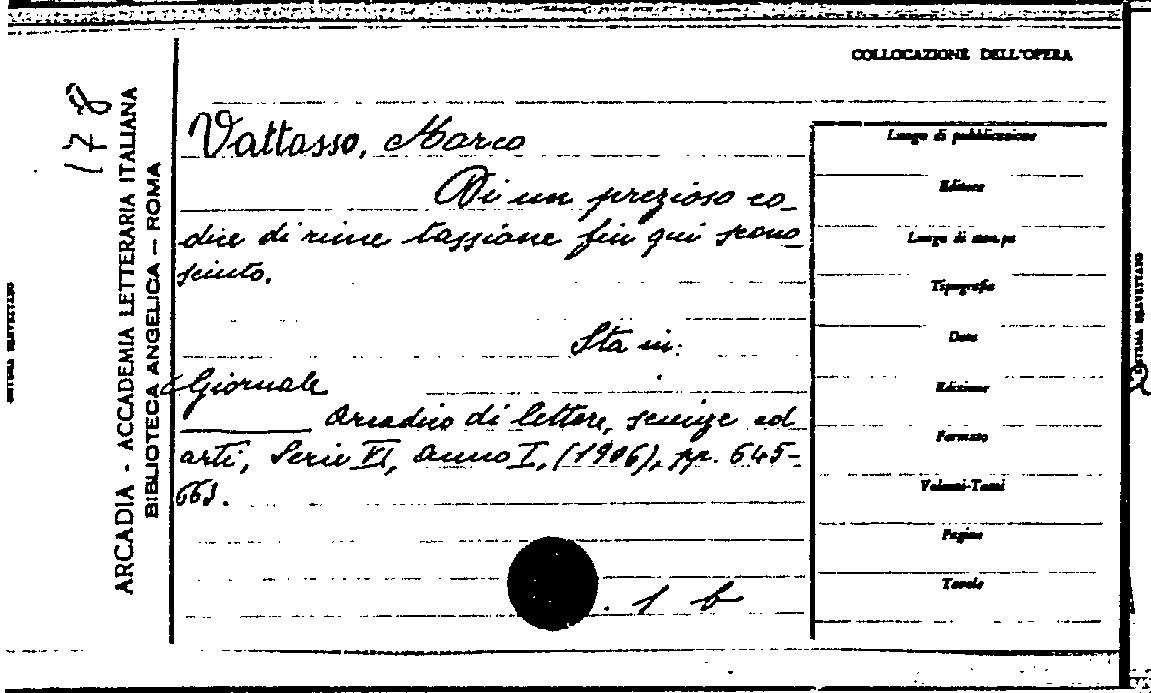 COLLOCAZIONE DELL'OPERA
178
ARCADIA - ACCADEMIA LETTERARIA ITALIANA
BIBLIOTECA ANGELICA — ROMA
Vattasso, Marco
Di un prezioso co-
dice di rime tassiane fin qui scono
sciuto.
Sta in:
Giornale
Arcadico di lettere, scienze ed
arti, Serie VI, Anno I, (1906), pp. 645-
663.
1 b
Luogo di pubblicazione
Editore
Luogo di stampa
Tipografia
Data
Edizione
Formato
Volumi-Tomi
Pagine
Tavole